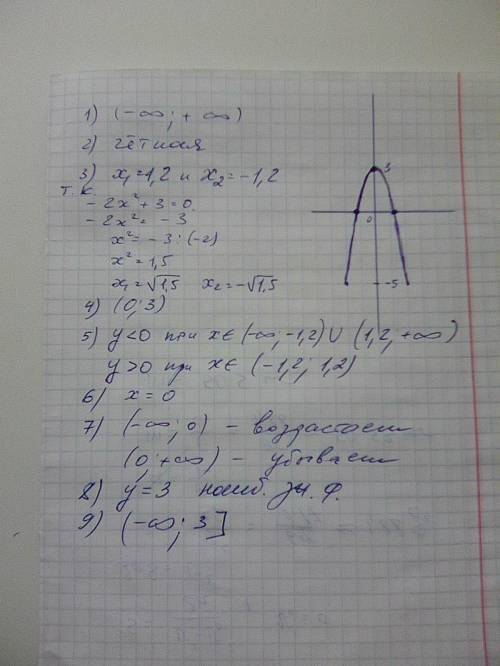 1) (-∞; +∞)
2) чётная
3) x₁=1,2 и x₂=-1,2
т.к.
-2x²+3=0
-2x²=-3
x²=-3:(-2)
x²=1,5
x₁=√1,5 x₂=-√1,5
4) (0;3)
5) y<0 при x∈(-∞;-1,2)∪(1,2;+∞)
y>0 при x∈(-1,2; 1,2)
6) x=0
7) (-∞;0) - возрастает
(0;+∞) - убывает
8) y=3 наиб. зн. ф.
9) (-∞; 3]
3
0
-5